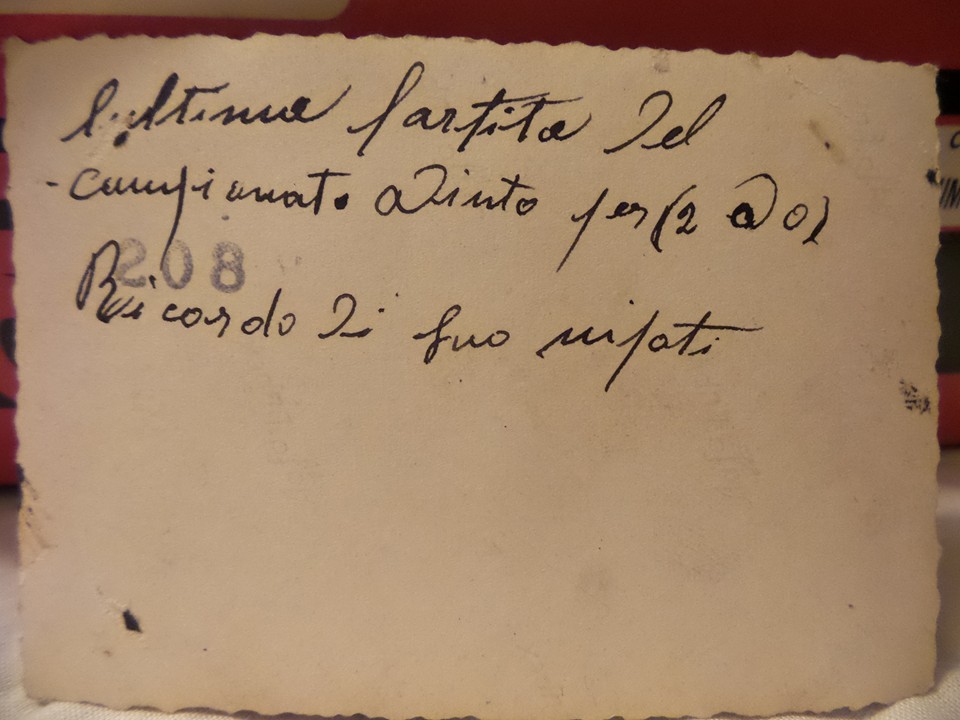 l'ultima partita del
campionato Vinto per (2 a 0)
208
Ricordo di suo nipoti